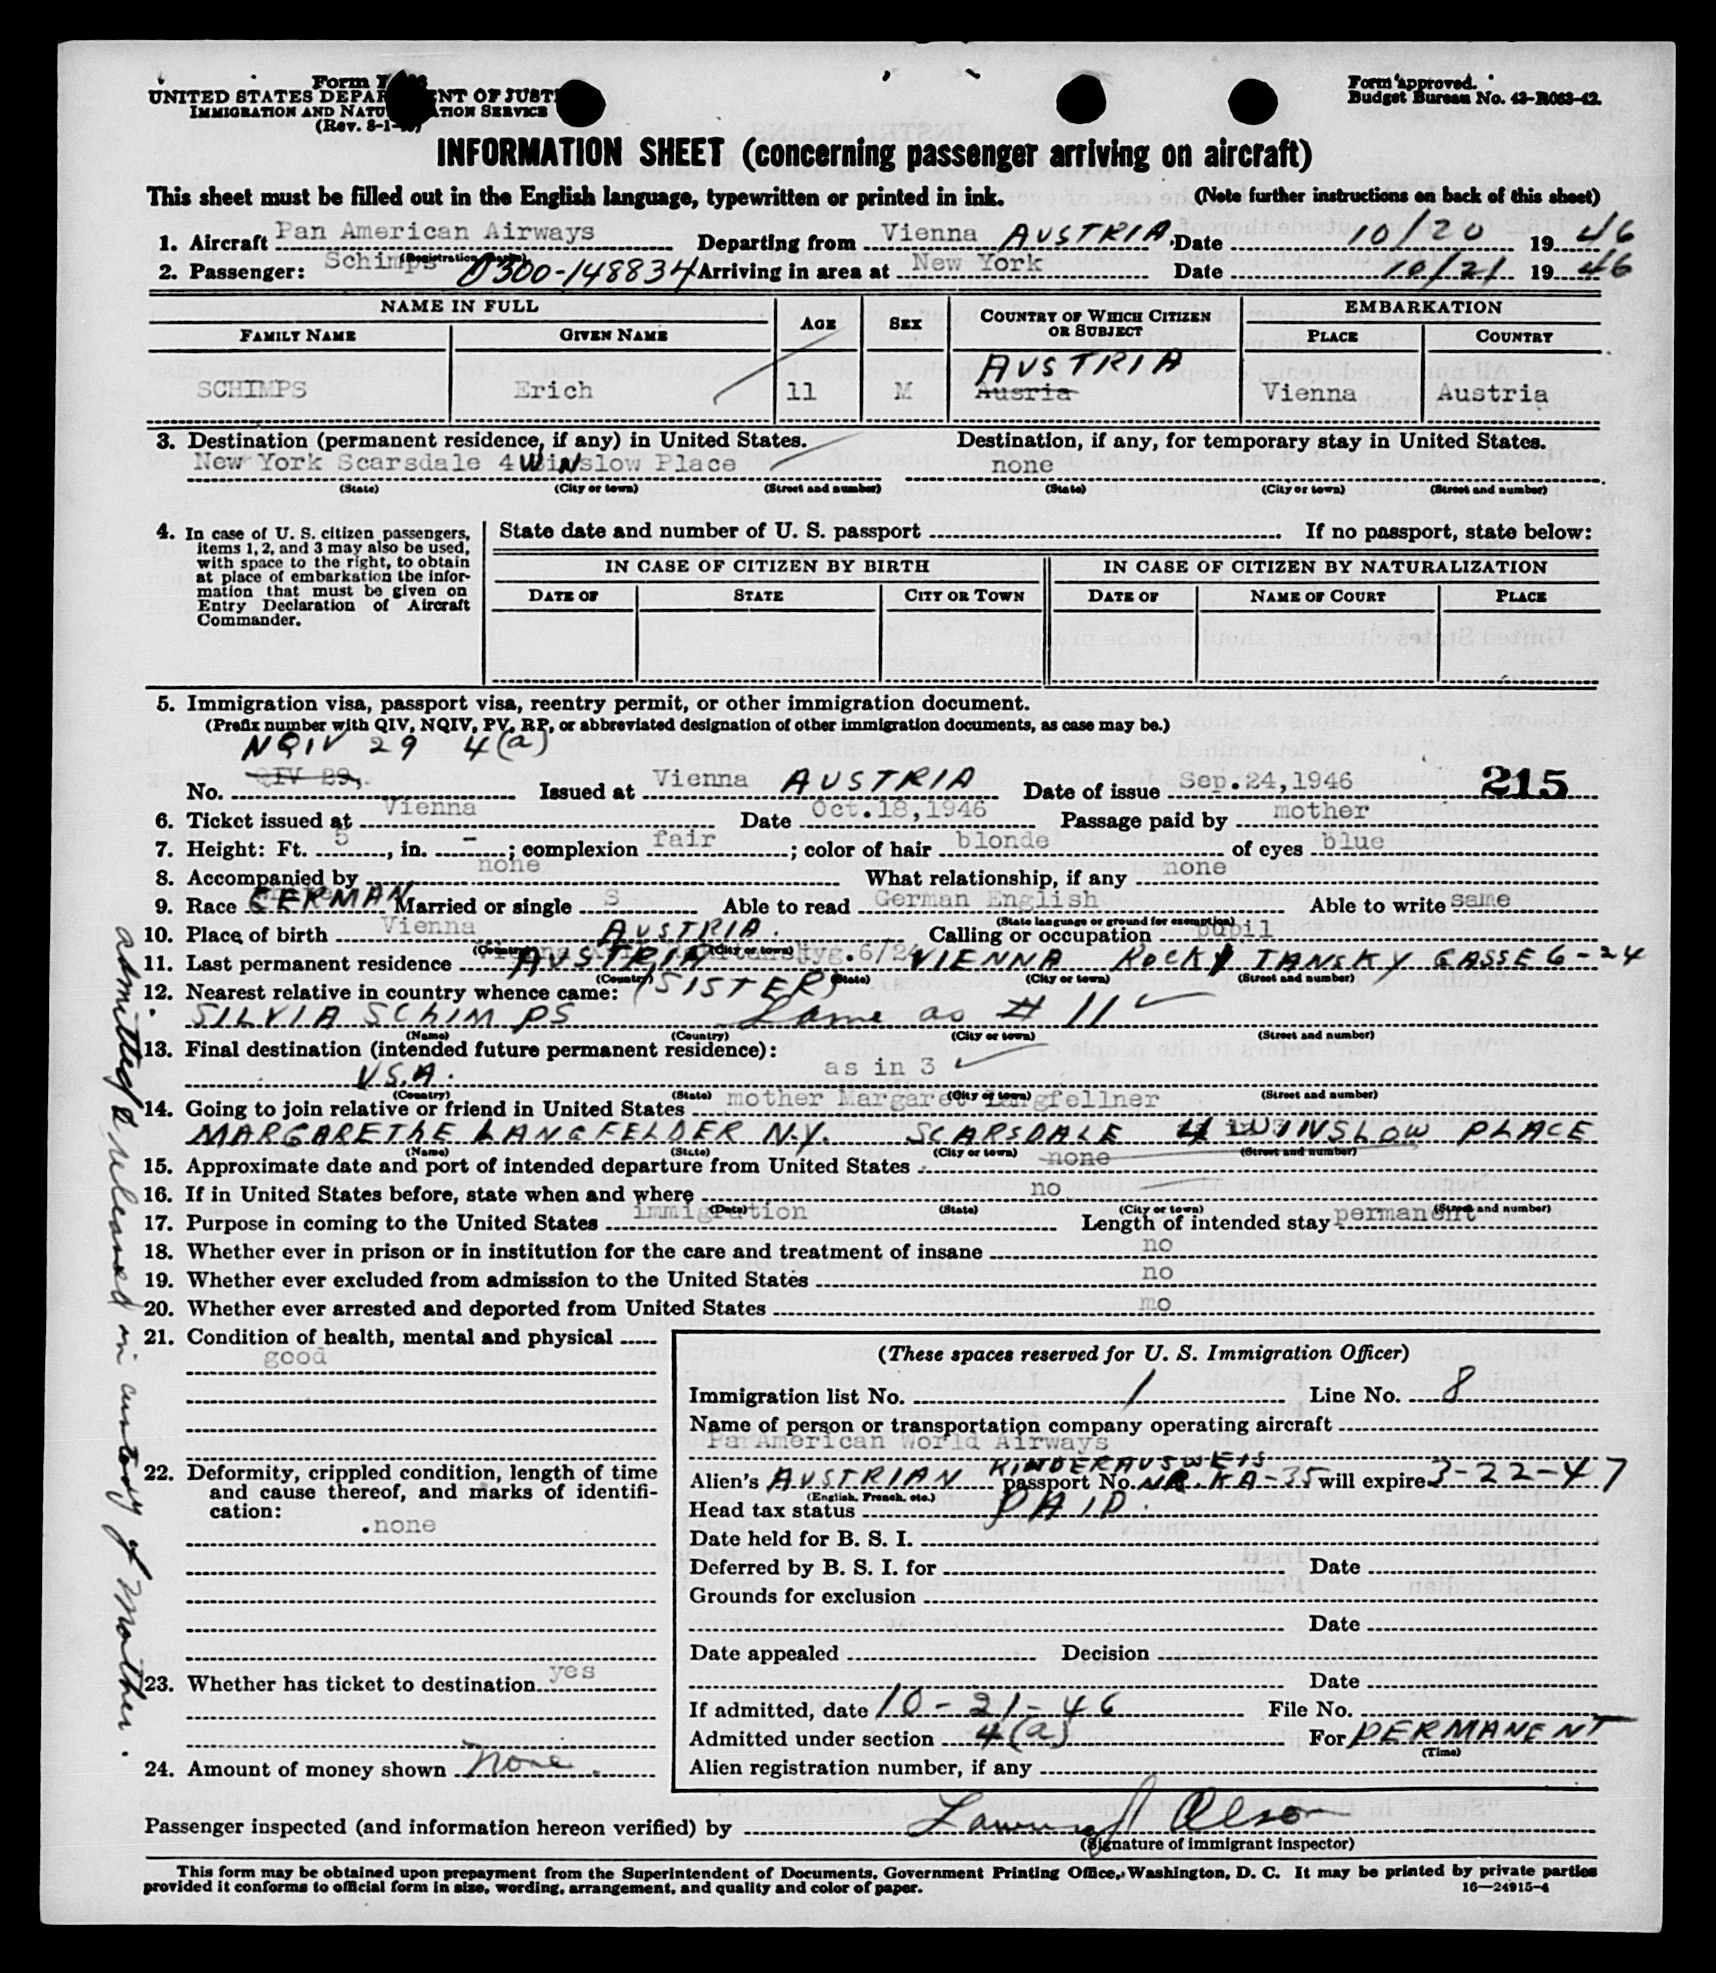 Form I-
UNITED STATES DEPARTMENT OF JUSTICE
IMMIGRATION AND NATURALIZATION SERVICE
(Rev. 8-1-
Form approved.
Budget Bureau No. 43-R063-42.
INFORMATION SHEET (concerning passenger arriving on aircraft)
This sheet must be filled out in the English language, typewritten or printed in ink. (Note further instructions on back of this sheet)
1. Aircraft Pan American Airways Departing from Vienna AUSTRIA Date 10/20 1946
(Registration marks)
2. Passenger: Schimps 0300-148834 Arriving in area at New York Date 10/21 1946
NAME IN FULL AGE SEX COUNTRY OF WHICH CITIZEN OR SUBJECT EMBARKATION
FAMILY NAME GIVEN NAME PLACE COUNTRY
AUSTRIA
SCHIMPS Erich 11 M Ausria Vienna Austria
3. Destination (permanent residence, if any) in United States. Destination, if any, for temporary stay in United States.
New York Scarsdale 4 Winslow Place none
(State) (City or town) (Street and number) (State) (City or town) (Street and number)
4. In case of U. S. citizen passengers, items 1, 2, and 3 may also be used, with space to the right, to obtain at place of embarkation the information that must be given on Entry Declaration of Aircraft Commander.
State date and number of U. S. passport If no passport, state below:
IN CASE OF CITIZEN BY BIRTH IN CASE OF CITIZEN BY NATURALIZATION
DATE OF STATE CITY OR TOWN DATE OF NAME OF COURT PLACE
5. Immigration visa, passport visa, reentry permit, or other immigration document.
(Prefix number with QIV, NQIV, PV, RP, or abbreviated designation of other immigration documents, as case may be.)
NQIV 29 4(a)
No. QIV 29, Issued at Vienna AUSTRIA Date of issue Sep.24,1946 215
6. Ticket issued at Vienna Date Oct.18,1946 Passage paid by mother
7. Height: Ft. 5, in. -; complexion fair; color of hair blonde of eyes blue
8. Accompanied by none What relationship, if any none
9. Race GERMAN Married or single S Able to read German English Able to write same
(State language or ground for exemption)
10. Place of birth Vienna AUSTRIA. Calling or occupation pupil
(Country) (City or town)
11. Last permanent residence AUSTRIA 6/24 VIENNA ROCKYTANSKY GASSE 6-24
(Country) (State) (City or town) (Street and number)
12. Nearest relative in country whence came: (SISTER)
SILVIA SCHIMPS Same as # 11
(Name) (Country) (City or town) (Street and number)
13. Final destination (intended future permanent residence):
U.S.A. as in 3
(Country) (State) (City or town) (Street and number)
14. Going to join relative or friend in United States mother Margaret Langfellner
MARGARETHE LANGFELDER N.Y. SCARSDALE 4 WINSLOW PLACE
(Name) (State) (City or town) (Street and number)
15. Approximate date and port of intended departure from United States none
16. If in United States before, state when and where no
(Date) (State) (City or town) (Street and number)
17. Purpose in coming to the United States immigration Length of intended stay permanent
18. Whether ever in prison or in institution for the care and treatment of insane no
19. Whether ever excluded from admission to the United States no
20. Whether ever arrested and deported from United States mo
21. Condition of health, mental and physical
good
22. Deformity, crippled condition, length of time and cause thereof, and marks of identification:
.none
23. Whether has ticket to destination yes
24. Amount of money shown None.
(These spaces reserved for U. S. Immigration Officer)
Immigration list No. 1 Line No. 8
Name of person or transportation company operating aircraft
Pa American World Airways
KINDERAUSWEIS
Alien's AUSTRIAN passport No. NR. KA-35 will expire 3-22-47
(English, French, etc.)
Head tax status PAID.
Date held for B. S. I.
Deferred by B. S. I. for Date
Grounds for exclusion
Date
Date appealed Decision
Date
If admitted, date 10-21-46 File No.
Admitted under section 4(a) For PERMANENT
(Time)
Alien registration number, if any
Passenger inspected (and information hereon verified) by Olson
(Signature of immigrant inspector)
This form may be obtained upon prepayment from the Superintendent of Documents, Government Printing Office, Washington, D. C. It may be printed by private parties
provided it conforms to official form in size, wording, arrangement, and quality and color of paper. 16—24915-4
admitted & released in custody of Mother.